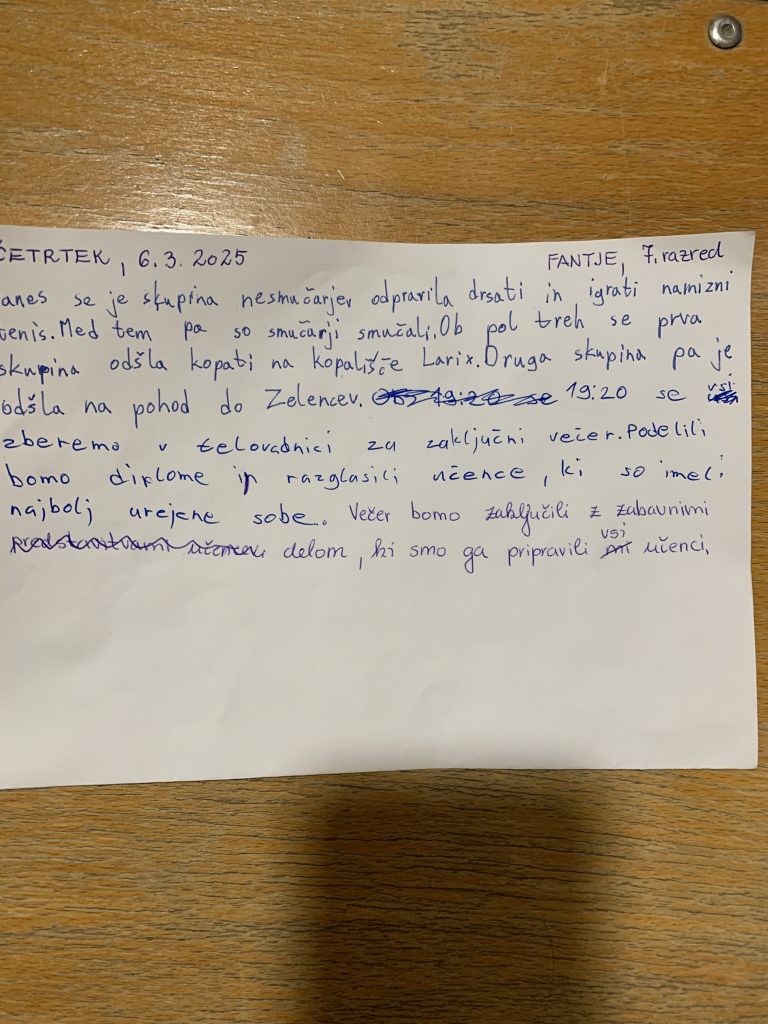 ČETRTEK, 6.3.2025 FANTJE, 7.razred
anes se je skupina nesmučarjev odpravila drsati in igrati namizni
tenis. Med tem pa so smučarji smučali. Ob pol treh se prva
skupina odšla kopati na kopališče Larix. Druga skupina pa je
odšla na pohod do Zelencev. 19:20 se vsi
zberemo v telovadnici za zaključni večer. Podelili
bomo diplome in razglasili učence, ki so imeli
najbolj urejene sobe. Večer bomo zaključili z zabavnimi
delom, ki smo ga pripravili vsi učenci.